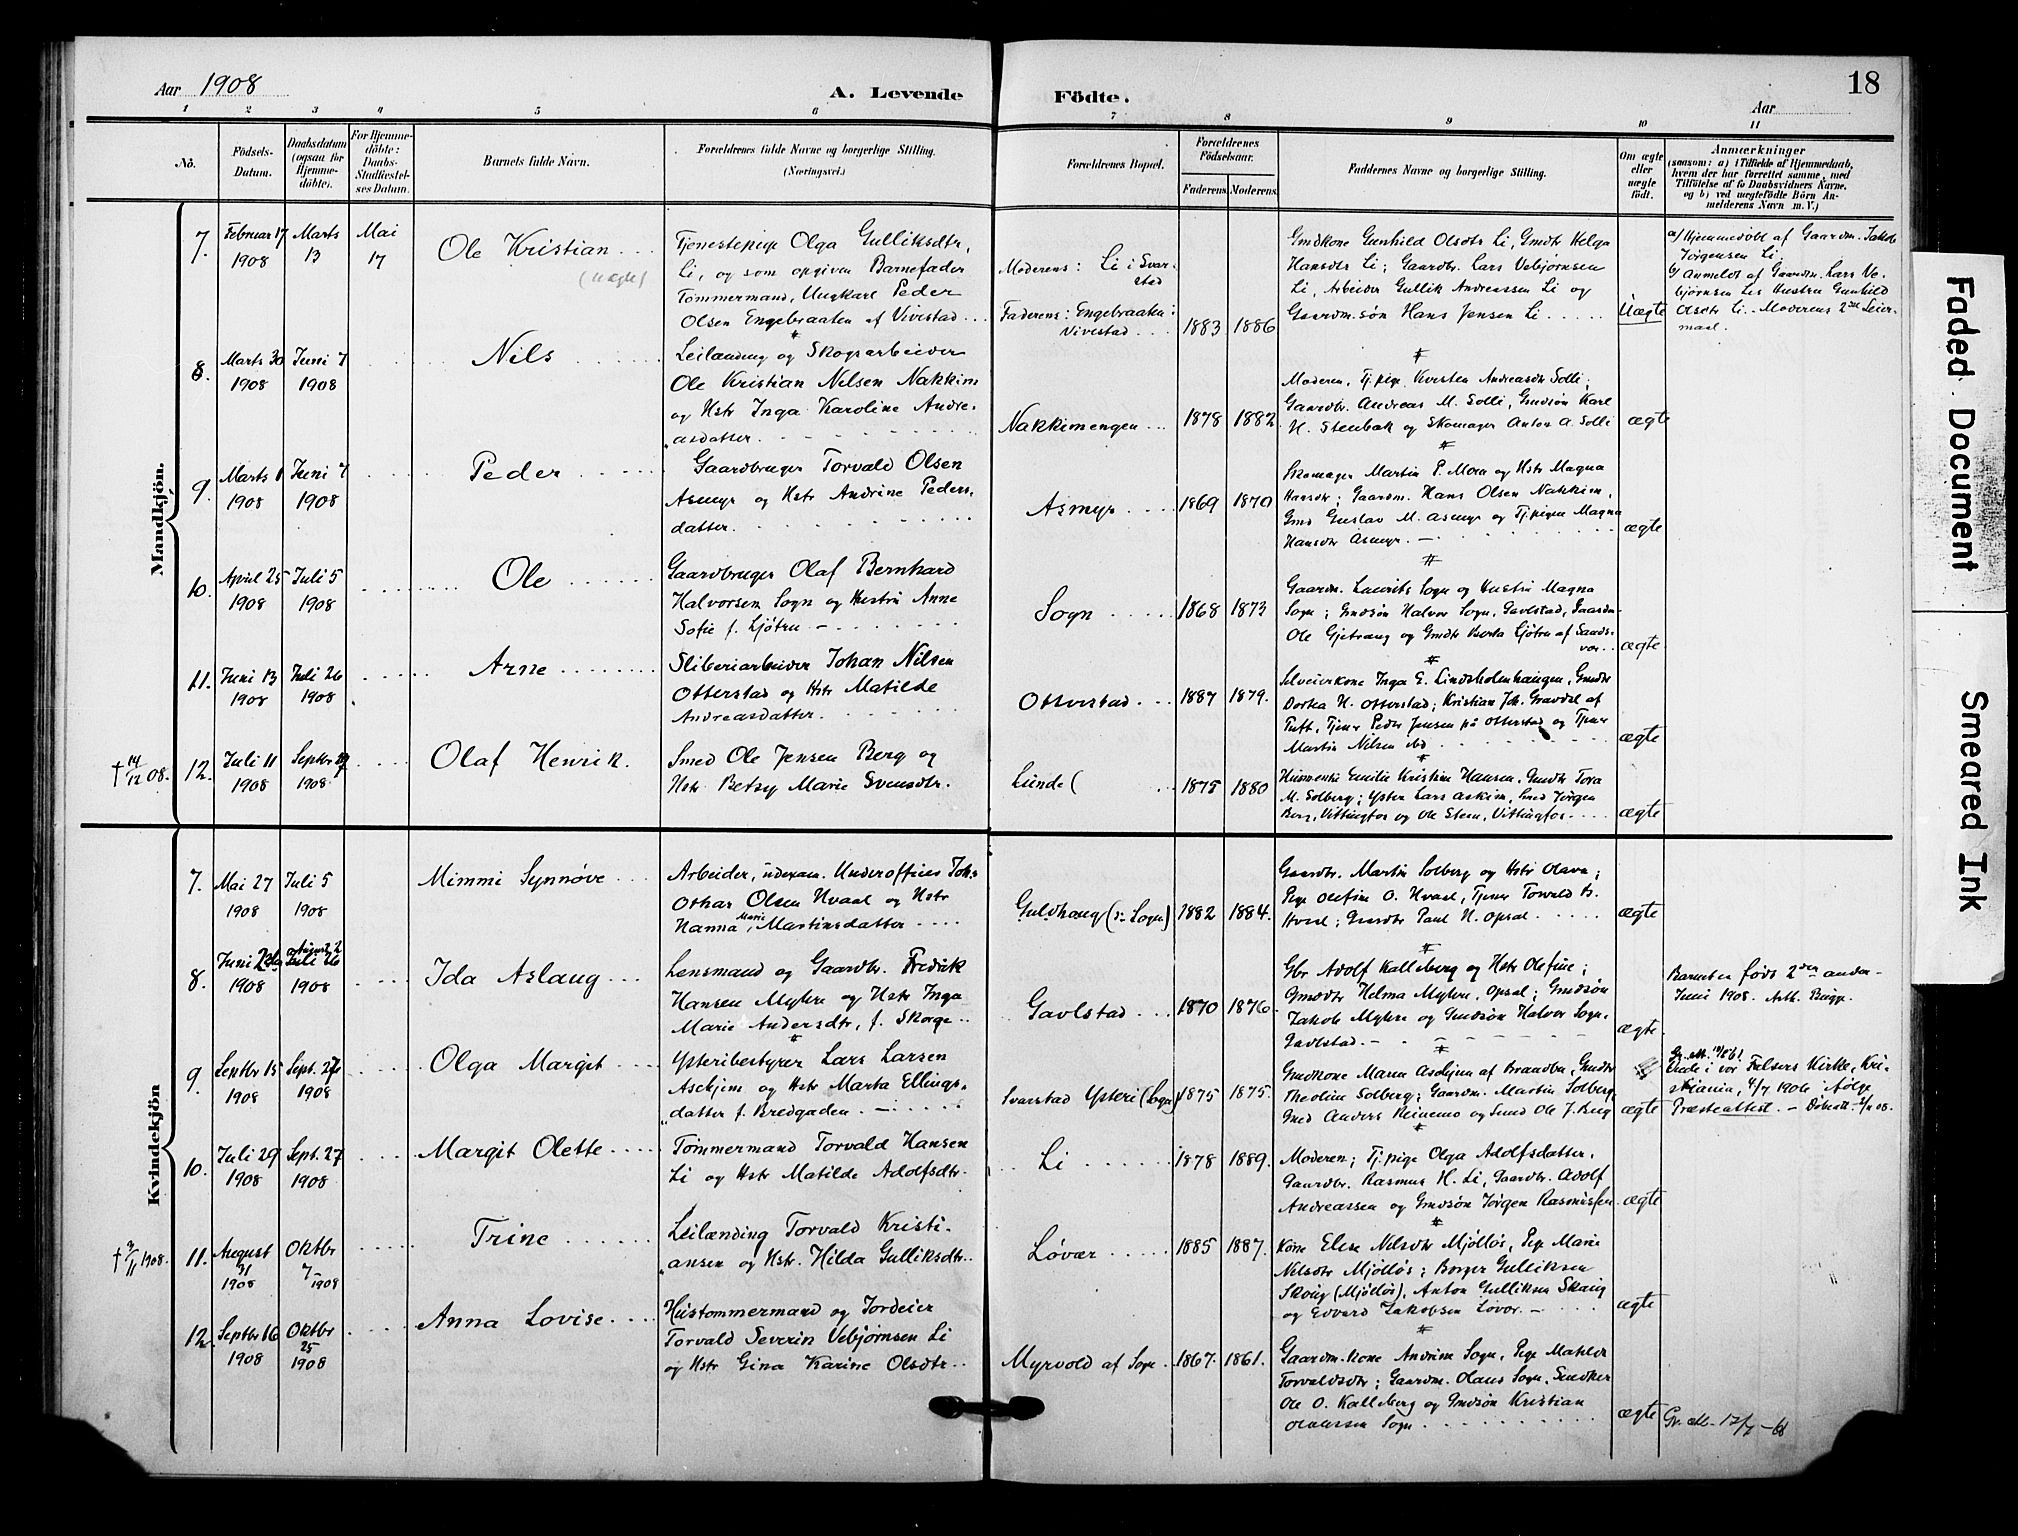 Aar 1908
A. Levende
Födte.
Aar
18
1 2 3 4 5 6 7 8 9 10 11
No.
Födsels-
Datum.
Daabsdatum
(ogsaa for
Hjemme-
döbte).
For Hjemme-
döbte:
Daabs-
Stadfæstel-
ses Datum.
Barnets fulde Navn.
Forældrenes fulde Navne og borgerlige Stilling.
(Næringsvei.)
Forældrenes Bopæl.
Forældrenes
Födselsaar.
Faderens.
Moderens.
Faddernes Navne og borgerlige Stilling.
Om ægte
eller
uægte
födt.
Anmærkninger
(saasom: a) i Tilfælde af Hjemmedaab,
hvem der har forrettet samme, med
Tilföielse af to Daabsvidners Navne,
og b) ved uægtefödte Börn An-
melderens Navn m. V.)
Mandkjön.
7.
Februar 17
1908
Marts
13
Mai
17
Ole Kristian
(uægte)
Tjenestepige Olga Gulliksdtr.
Li, og som opgiven Barnefader
Tømmermand, Ungkarl Peder
Olsen Engebraaten af Vivestad
Moderens: Li i Svar-
stad
Faderens: Engebraaten:
Vivestad
1883
1886
Gmdkone Gunhild Olsdtr Li, Gmdtr Helga
Hansdtr Li; Gaardbr. Lars Vebjørnsen
Li, Arbeider Gullik Andreassen Li og
Gaardm.søn Hans Jensen Li
Uægte
a) Hjemmedøbt af Gaardm. Jakob
Jørgensen Li.
b) Anmeldt af Gaardm. Lars Ve-
bjørnsen Lis Hustru Gunhild
Olsdtr Li. Moderens 2det Leier-
maal.
8.
Marts 30
1908
Juni 7
1908
Nils
Leilænding og Skogsarbeider
Ole Kristian Nilsen Nakkim
og Hstr Inga Karoline Andre-
asdatter.
Nakkimengen
1878
1882
Moderen, Tj.pige Kirsten Andreasdtr Solli;
Gaardbr. Andreas M. Solli, Gmdsøn Karl
H. Stenbak og Skomager Anton A. Solli
ægte
9.
Marts 1
1908
Juni 7
1908
Peder
Gaardbruger Torvald Olsen
Asmyr og Hstr Andrine Peders-
datter.
Asmyr
1869
1870
Skomager Martin P. Moen og Hstr Magna
Hansdtr; Gaardm. Hans Olsen Nakkim,
Gmd Gustav M. Asmyr og Tj.pigen Magna
Hansdtr Asmyr.
ægte
10.
April 25
1908
Juli 5
1908
Ole
Gaardbruger Olaf Bernhard
Halvorsen Sogn og Hustru Anne
Sofie f. Ljøtru
Sogn
1868
1873
Gaardm. Laurits Sogn og Hustru Magna
Sogn; Gmdsøn Halvor Sogn, Gavlstad, Gaardm-
Ole Gjetrang og Gmdtr Berta Ljøtru af Sands-
vær
ægte
11.
Juni 13
1908
Juli 26
1908
Arne
Sliberiarbeider Johan Nilsen
Otterstad og Hstr Matilde
Andreasdatter.
Otterstad
1887
1879.
Selveierkone Inga E. Lindsholmhaugen, Gmdtr
Dorthea H. Otterstad; Kristian Joh. Gravdal af
Tuft, Tjener Peder Jensen på Otterstad og Tjener
Martin Nilsen ibd
ægte
† 14/12 08.
12.
Juli 11
1908
Septbr 27
1908
Olaf Henrik.
Smed Ole Jensen Berg og
Hstr Betzy Marie Svensdtr.
Lunde (
1875
1880
Emilie Kristine Hansen, Gmdtr Tora
M. Solberg; Yster Lars Askim, Smed Jørgen
Berg, Vittingfos og Ole Steen, Vittingfos
ægte
Kvindekjön
7.
Mai 27
1908
Juli 5
1908
Mimmi Synnøve
Arbeider, udexam. Underofficer Joh.
Othar Olsen Hvaal og Hstr
Hanna Marie Martinsdatter
Guldhaug (i Sogn)
1882
1884.
Gaardbr. Martin Solberg og Hstr Olava;
Pige Olefine O. Hvaal, Tjener Torvald
Hvaal; Gaardbr Paul H. Opsal
ægte
8.
Juni 2
1908
August 2
Juli 26
1908
Ida Aslaug
Lensmand og Gaardbr. Fredrik
Hansen Myhre og Hstr Inga
Marie Andersdtr, f. Skorge
Gavlstad
1870
1876.
Gbr Adolf Kalleberg og Hstr Olefine;
Gmdtr Helma Myhre, Opsal; Gmdsøn
Jakob Myhre og Gmdsøn Halvor Sogn,
Gavlstad.
ægte
Barnet er født 2den anden
Juni 1908. Arth. Bugge.
9.
Septbr 15
1908
Sept. 27
1908
Olga Margit
Ysteribestyrer Lars Larsen
Askjem og Hstr Marta Ellings-
datter f. Bredgaden
Svarstad Ysteri (Sogn)
1875
1875.
Gmdkone Maren Askjem af Brandbu, Gmdtr
Theoline Solberg; Gaardm. Martin Solberg,
Gmd Anders Heinemo og Smed Ole J. Berg
ægte
Gr. att. 19/8 61
Viede i Vor Frelsers Kirke, Kri-
stiania, 4/7 1906 ifølge
Præsteattest. – Døbeatt.
10.
Juli 29
1908
Sept. 27
1908
Margit Olette
Tømmermand Torvald Hansen
Li og Hstr Matilde Adolfsdtr
Li
1878
1889.
Moderen; Tj.pige Olga Adolfsdatter,
Gaardbr. Rasmus H. Li, Gaardbr. Adolf
Andreassen og Gmdsøn Jørgen Rasmussen
ægte
† 2/11 1908.
11.
August
31
1908
Oktbr
7
1908
Trine
Leilænding Torvald Kristi-
ansen og Hstr. Hilda Gulliksdtr
Løvær
1885
1887.
Kone Elise Nilsdtr Mjølløs, Pige Marie
Nilsdtr Mjølløs; Borger Gulliksen
Skoug (Mjølløs), Anton Gulliksen Skoug
og Edvard Jakobsen Løvør.
ægte
12.
Septbr 16
1908
Oktbr
25
1908
Anna Lovise
Hustømmermand og Jordeier
Torvald Severin Vebjørnsen Li
og Hstr Gina Karine Olsdtr
Myrvold af Sogn
1867.
1861.
Gaardm.kone Andrine Sogn, Pige Matilde
Torvaldsdtr; Gaardm. Olaus Sogn, Snedker
Ole O. Kalleberg og Gmdsøn Kristian
Olaussen Sogn
ægte
Gr. att. 12/7 -68
Faded Document
Smeared Ink